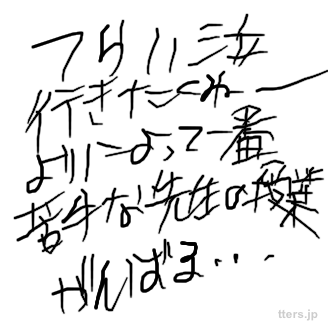 つらい泣
行きたくねー
よりによって一番
苦手な先生の授業
がんばる...
tters.jp